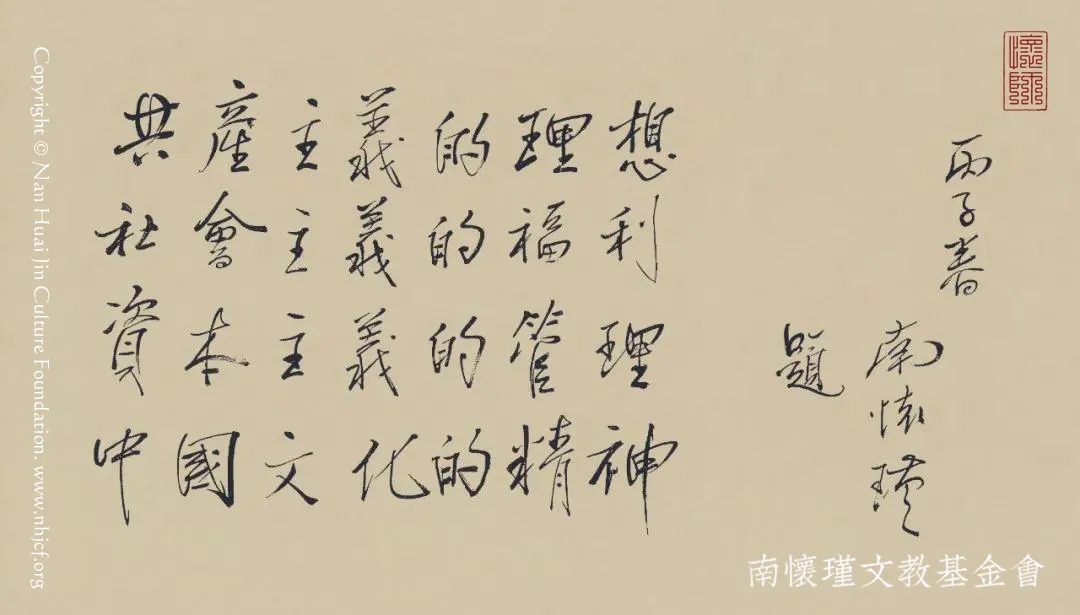 共產主義的理想
社會主義的福利
資本主義的管理
中國文化的精神
丙子春
南懷瑾
題
懷師
南懷瑾文教基金會
Copyright © Nan Huai Jin Culture Foundation. www.nhjcf.org